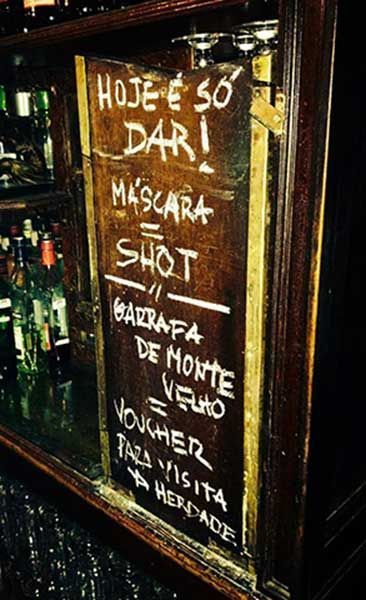 HOJE É SÓ
DAR!
MÁSCARA
=
SHOT
— // —
GARRAFA
DE MONTE
VELHO
=
VOUCHER
PARA VISITA
À HERDADE